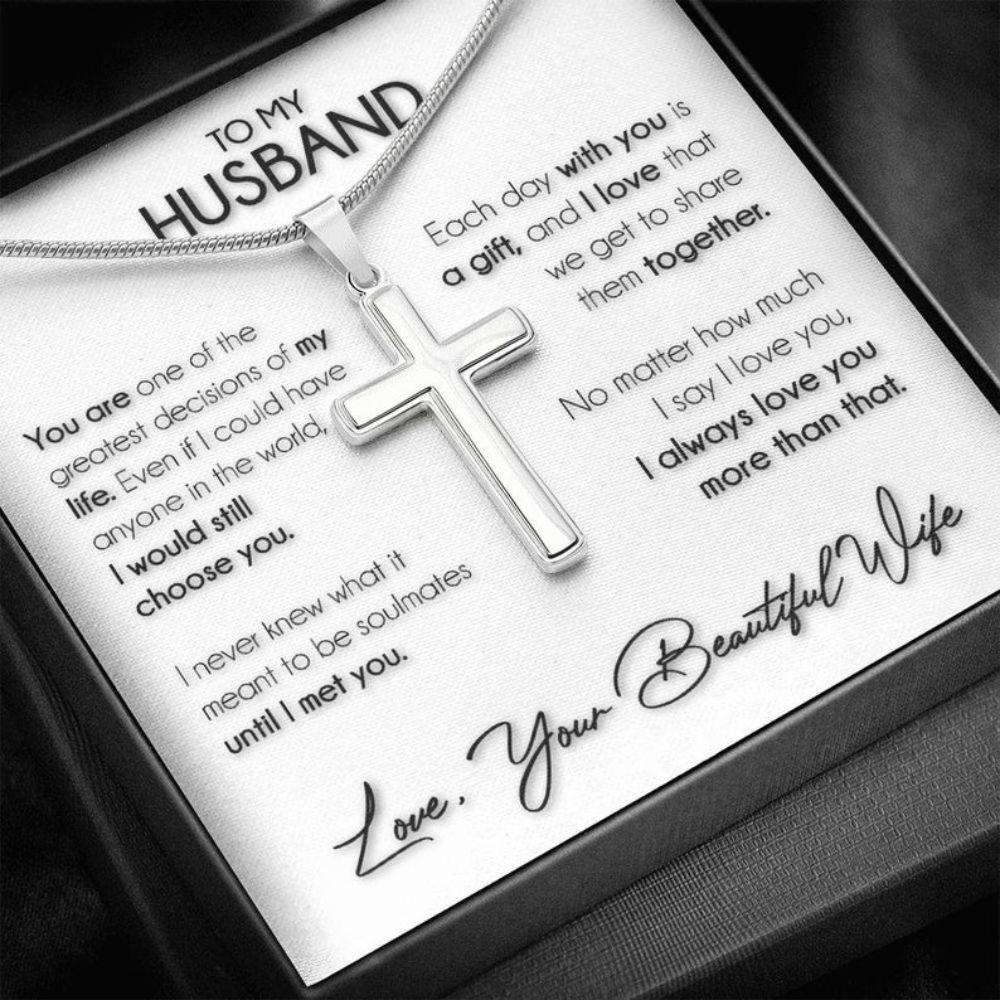 TO MY
HUSBAND
You are one of the
greatest decisions of my
life. Even if I could have
anyone in the world,
I would still
choose you.
I never knew what it
meant to be soulmates
until I met you.
Each day with you is
a gift, and I love that
we get to share
them together.
No matter how much
I say I love you,
I always love you
more than that.
Love, Your Beautiful Wife